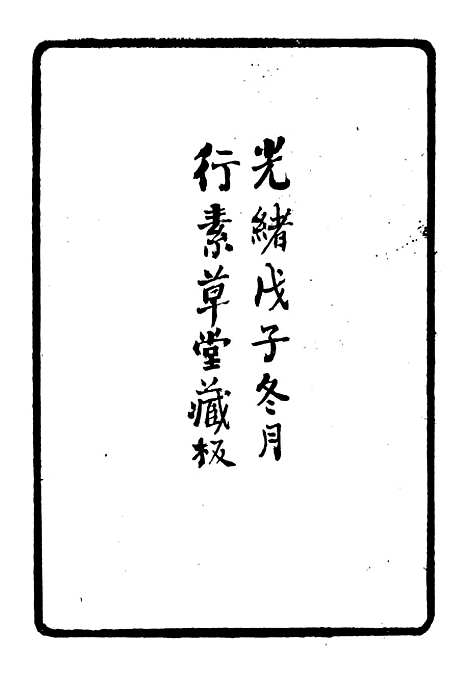 光緒戊子冬月
行素草堂藏板